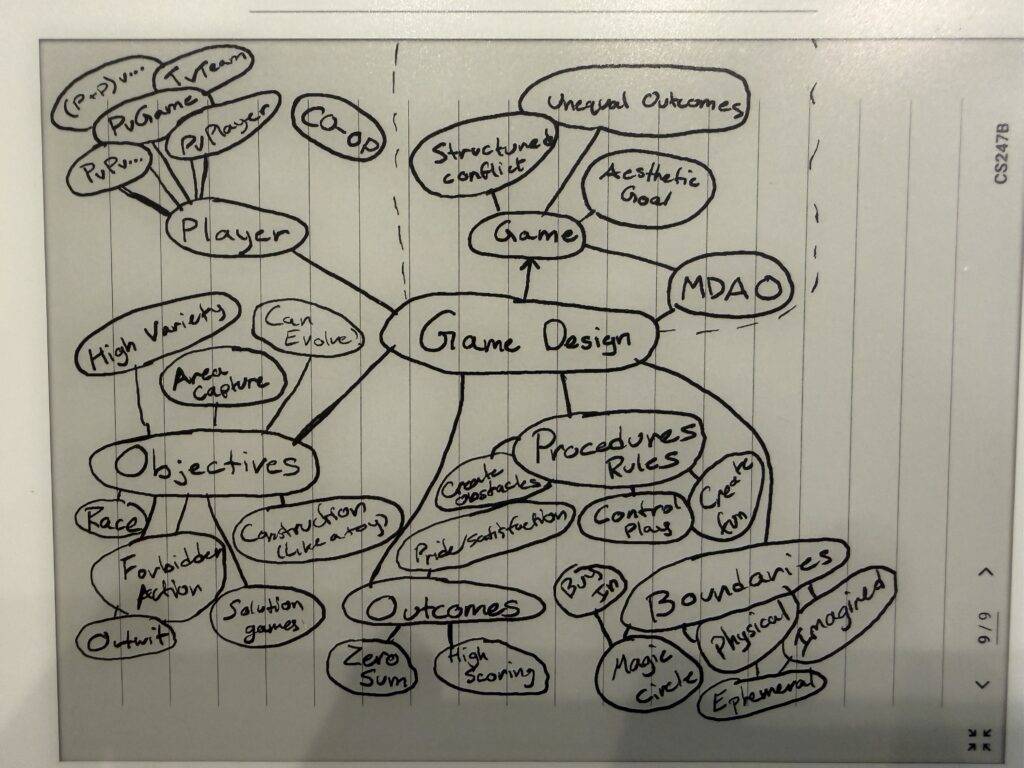 (P+P)v...
TvTeam
PvGame
PvPlayer
PvPv...
CO-OP
Player
Unequal Outcomes
Structured
conflict
Aesthetic
Goal
Game
MDAO
Game Design
High Variety
Can
Evolve
Area
Capture
Objectives
Race
Forbidden
Action
Outwit
Solution
games
Construction
(like a toy)
Procedures
Rules
Create
obstacles
Control
Plays
Create
fun
Pride/Satisfaction
Outcomes
Zero
Sum
High
Scoring
Boundaries
Buy
In
Magic
Circle
Physical
Imagined
Ephemeral
CS247B
9/9